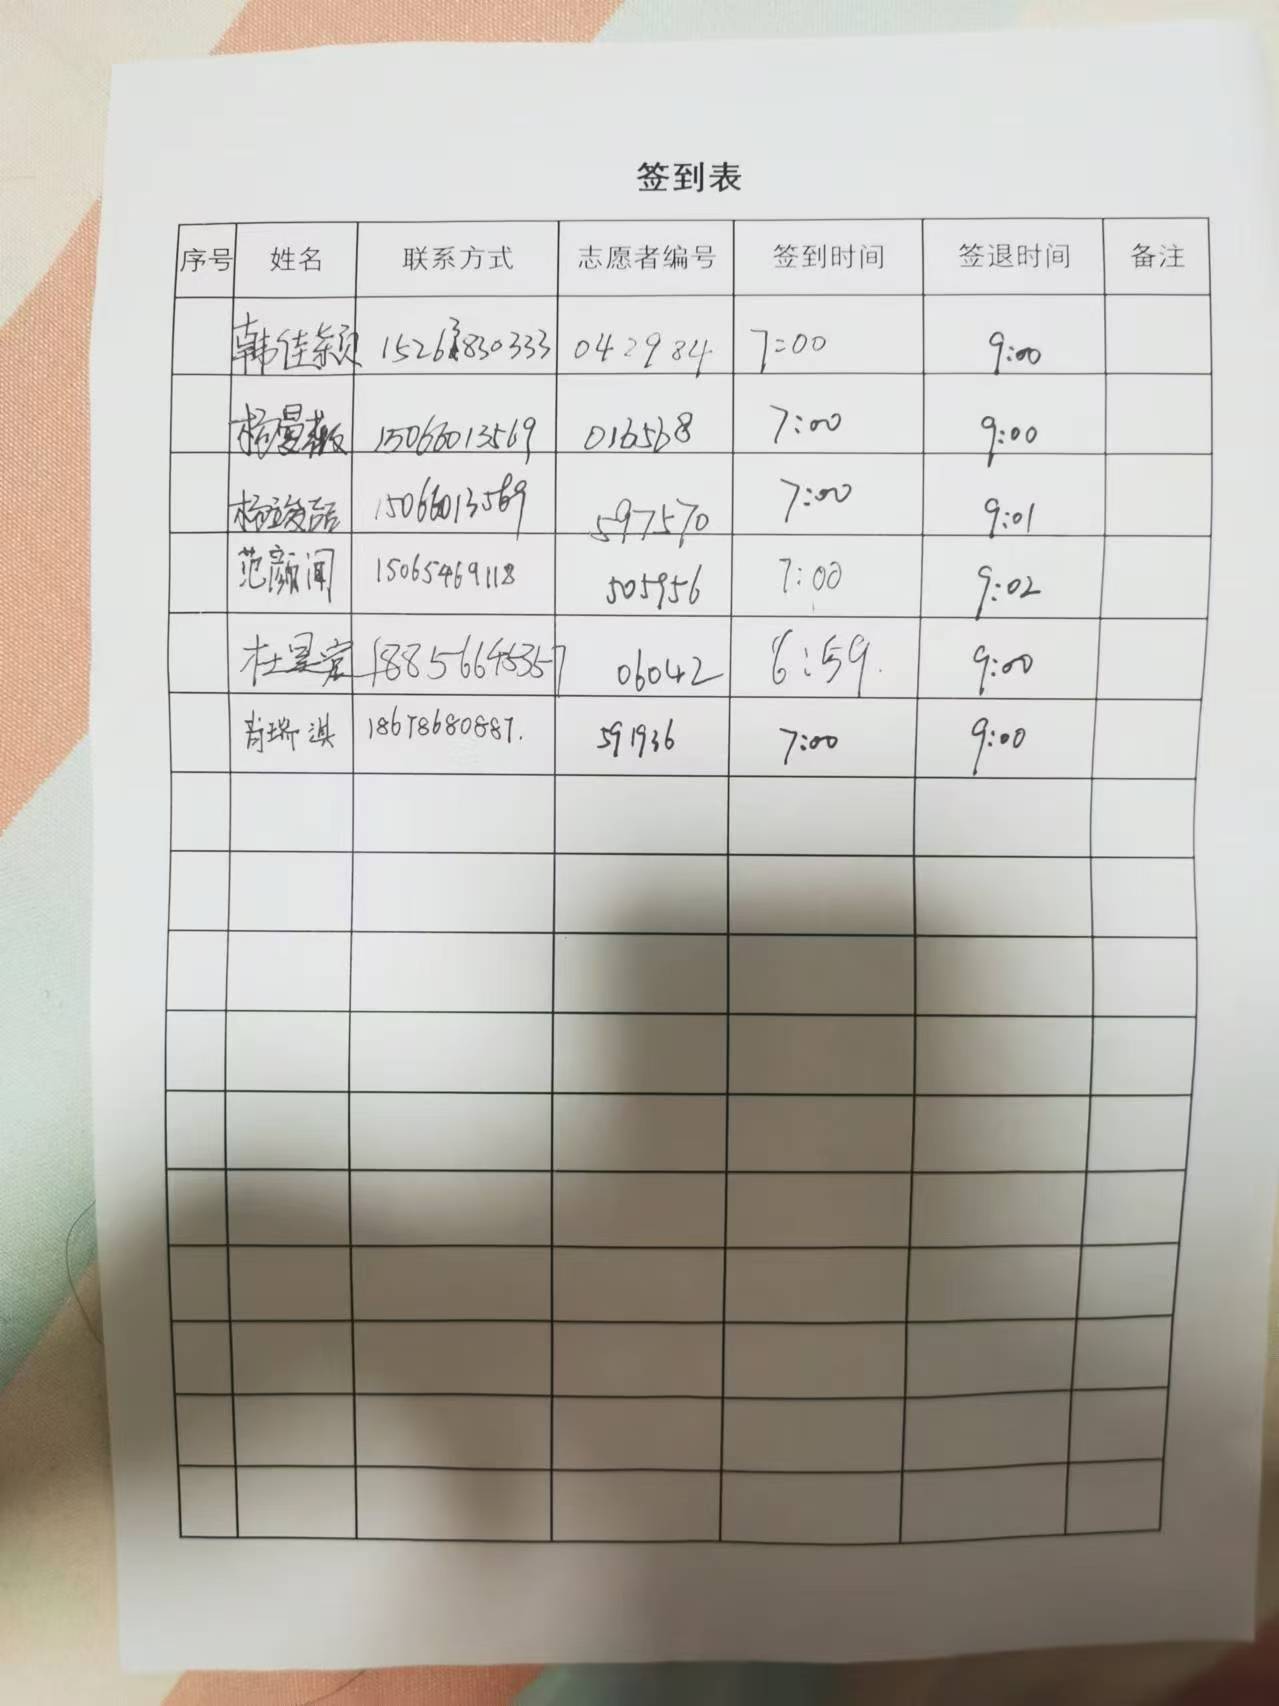 签到表
序号 姓名 联系方式 志愿者编号 签到时间 签退时间 备注
韩佳颖 15263830333 042984 7:00 9:00
杨曼 15066013569 016568 7:00 9:00
杨竣喆 15066013569 597570 7:00 9:01
范颜闻 15065469118 505956 7:00 9:02
杜昱宏 18856645357 06042 6:59. 9:00
肖瑞淇 18678680887. 591936 7:00 9:00